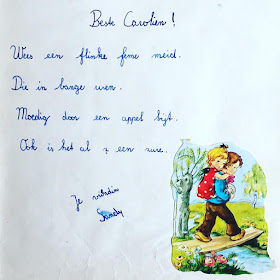 Beste Carolien !
Wees een flinke feme meid.
Die in bange uren.
Moedig door een appel bijt.
Ook is het al een zure.
Je vriendin
Sandy